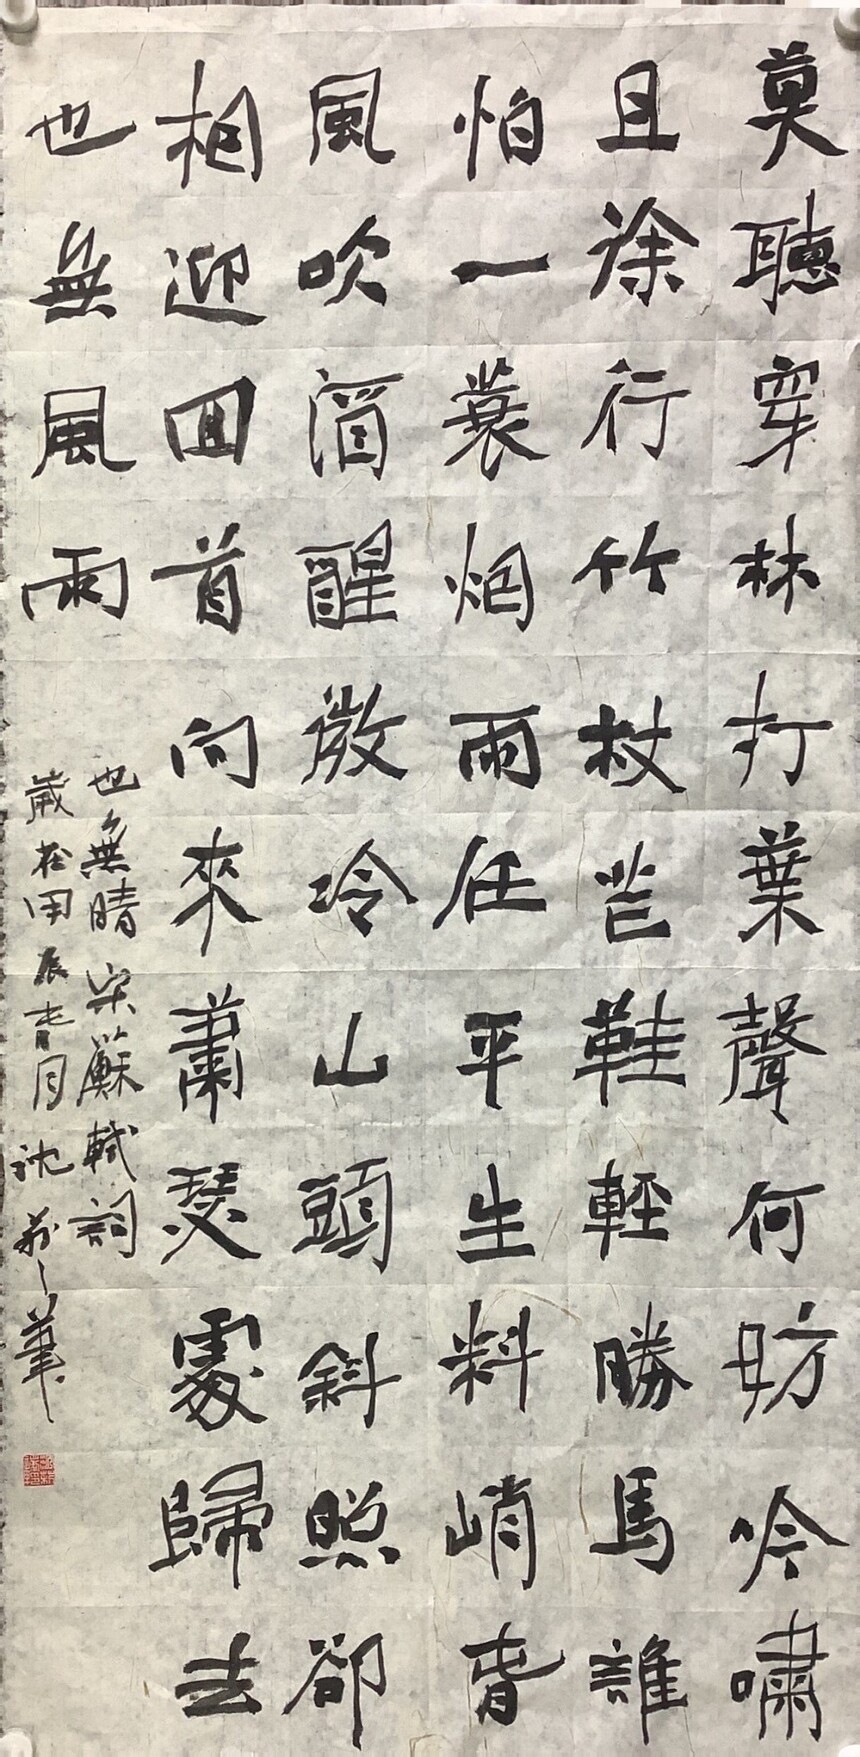 莫聽穿林打葉聲何妨吟嘯
且徐行竹杖芒鞋輕勝馬誰
怕一蓑烟雨任平生料峭春
風吹酒醒微冷山頭斜照卻
相迎回首向來蕭瑟處歸去
也無風雨
也無晴宋蘇軾詞
歲在甲辰春月沈之筆